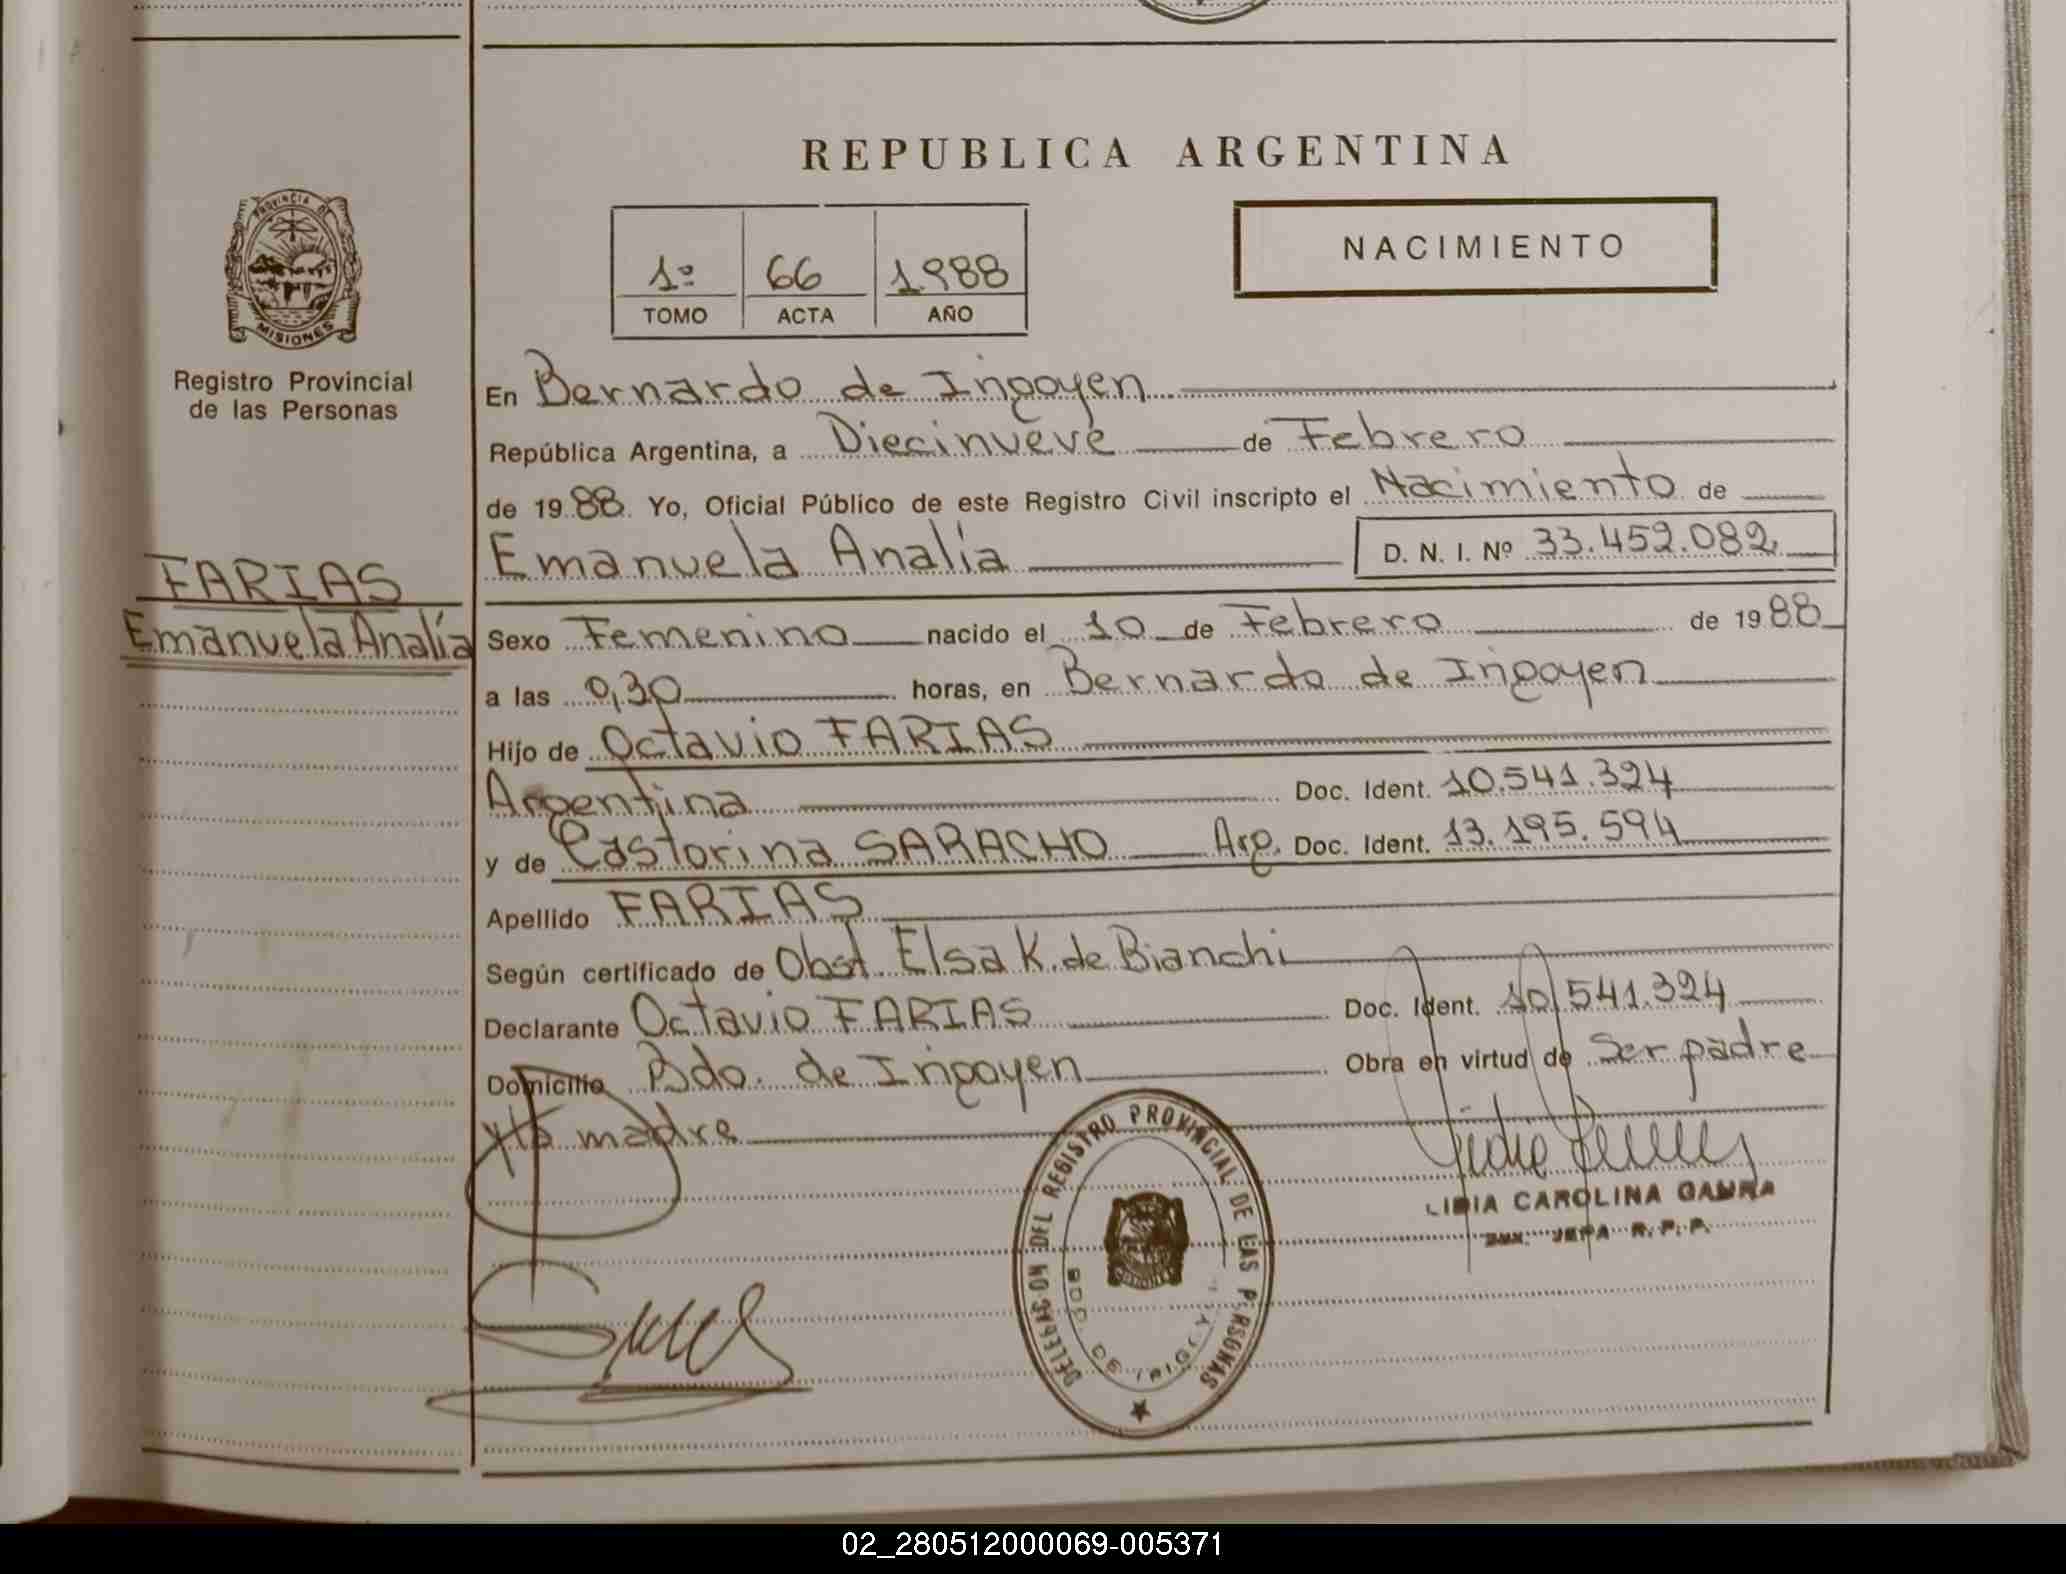 REPUBLICA ARGENTINA
PROVINCIA DE
MISIONES
Registro Provincial
de las Personas
1º 66 1988
TOMO ACTA AÑO
NACIMIENTO
En Bernardo de Irigoyen
República Argentina, a Diecinueve de Febrero
de 1988 Yo, Oficial Público de este Registro Civil inscripto el Nacimiento de
Emanuela Analía D. N. I. Nº 33.459.089
FARIAS
Emanuela Analía
Sexo Femenino nacido el 10 de Febrero de 1988
a las 0,30 horas, en Bernardo de Irigoyen
Hijo de Octavio FARIAS
Argentina Doc. Ident. 10.541.324
y de Castorina SARACHO Arg. Doc. Ident. 13.195.594
Apellido FARIAS
Según certificado de Obst. Elsa K. de Bianchi
Declarante Octavio FARIAS Doc. Ident. 10.541.324
Domicilio Bdo. de Irigoyen Obra en virtud de Ser padre
y la madre
LIDIA CAROLINA GAMRA
R. P. P.
DEL REGISTRO PROVINCIAL DE LAS PERSONAS
BDO. DE IRIGOYEN
02_280512000069-005371